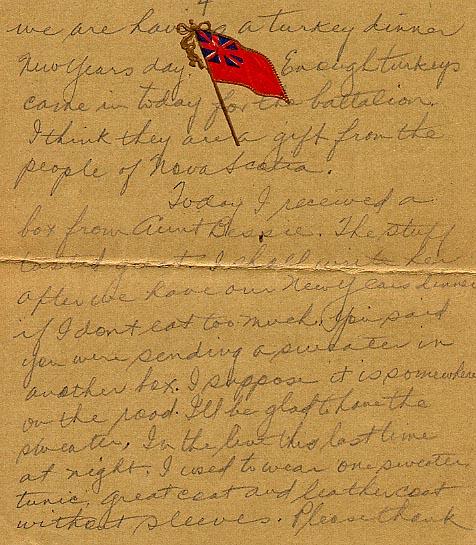 4
we are having a turkey dinner
New Years day. Enough turkeys
came in today for the battalion.
I think they are a gift from the
people of Nova Scotia.
Today I received a
box from Aunt Bessie. The stuff
tasted great I shall write her
after we have our New Years dinner
if I dont eat too much. You said
you were sending a sweater in
another box. I suppose it is somewhere
on the road. I'll be glad to have the
sweater. In the line this last time
at night. I used to wear one sweater
tunic, great coat and leather coat
without sleeves. Please thank